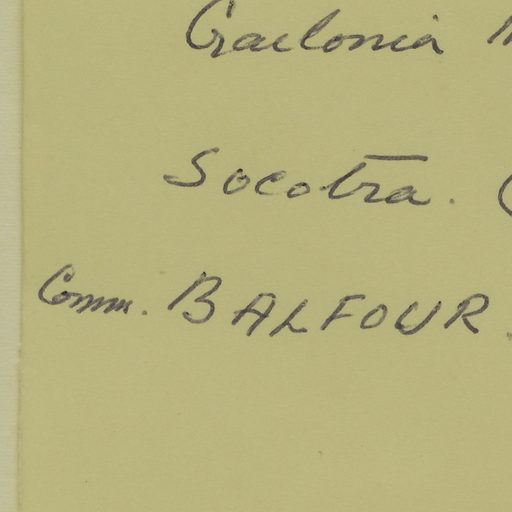 Graelonia
Socotra. (
Comm. BALFOUR.